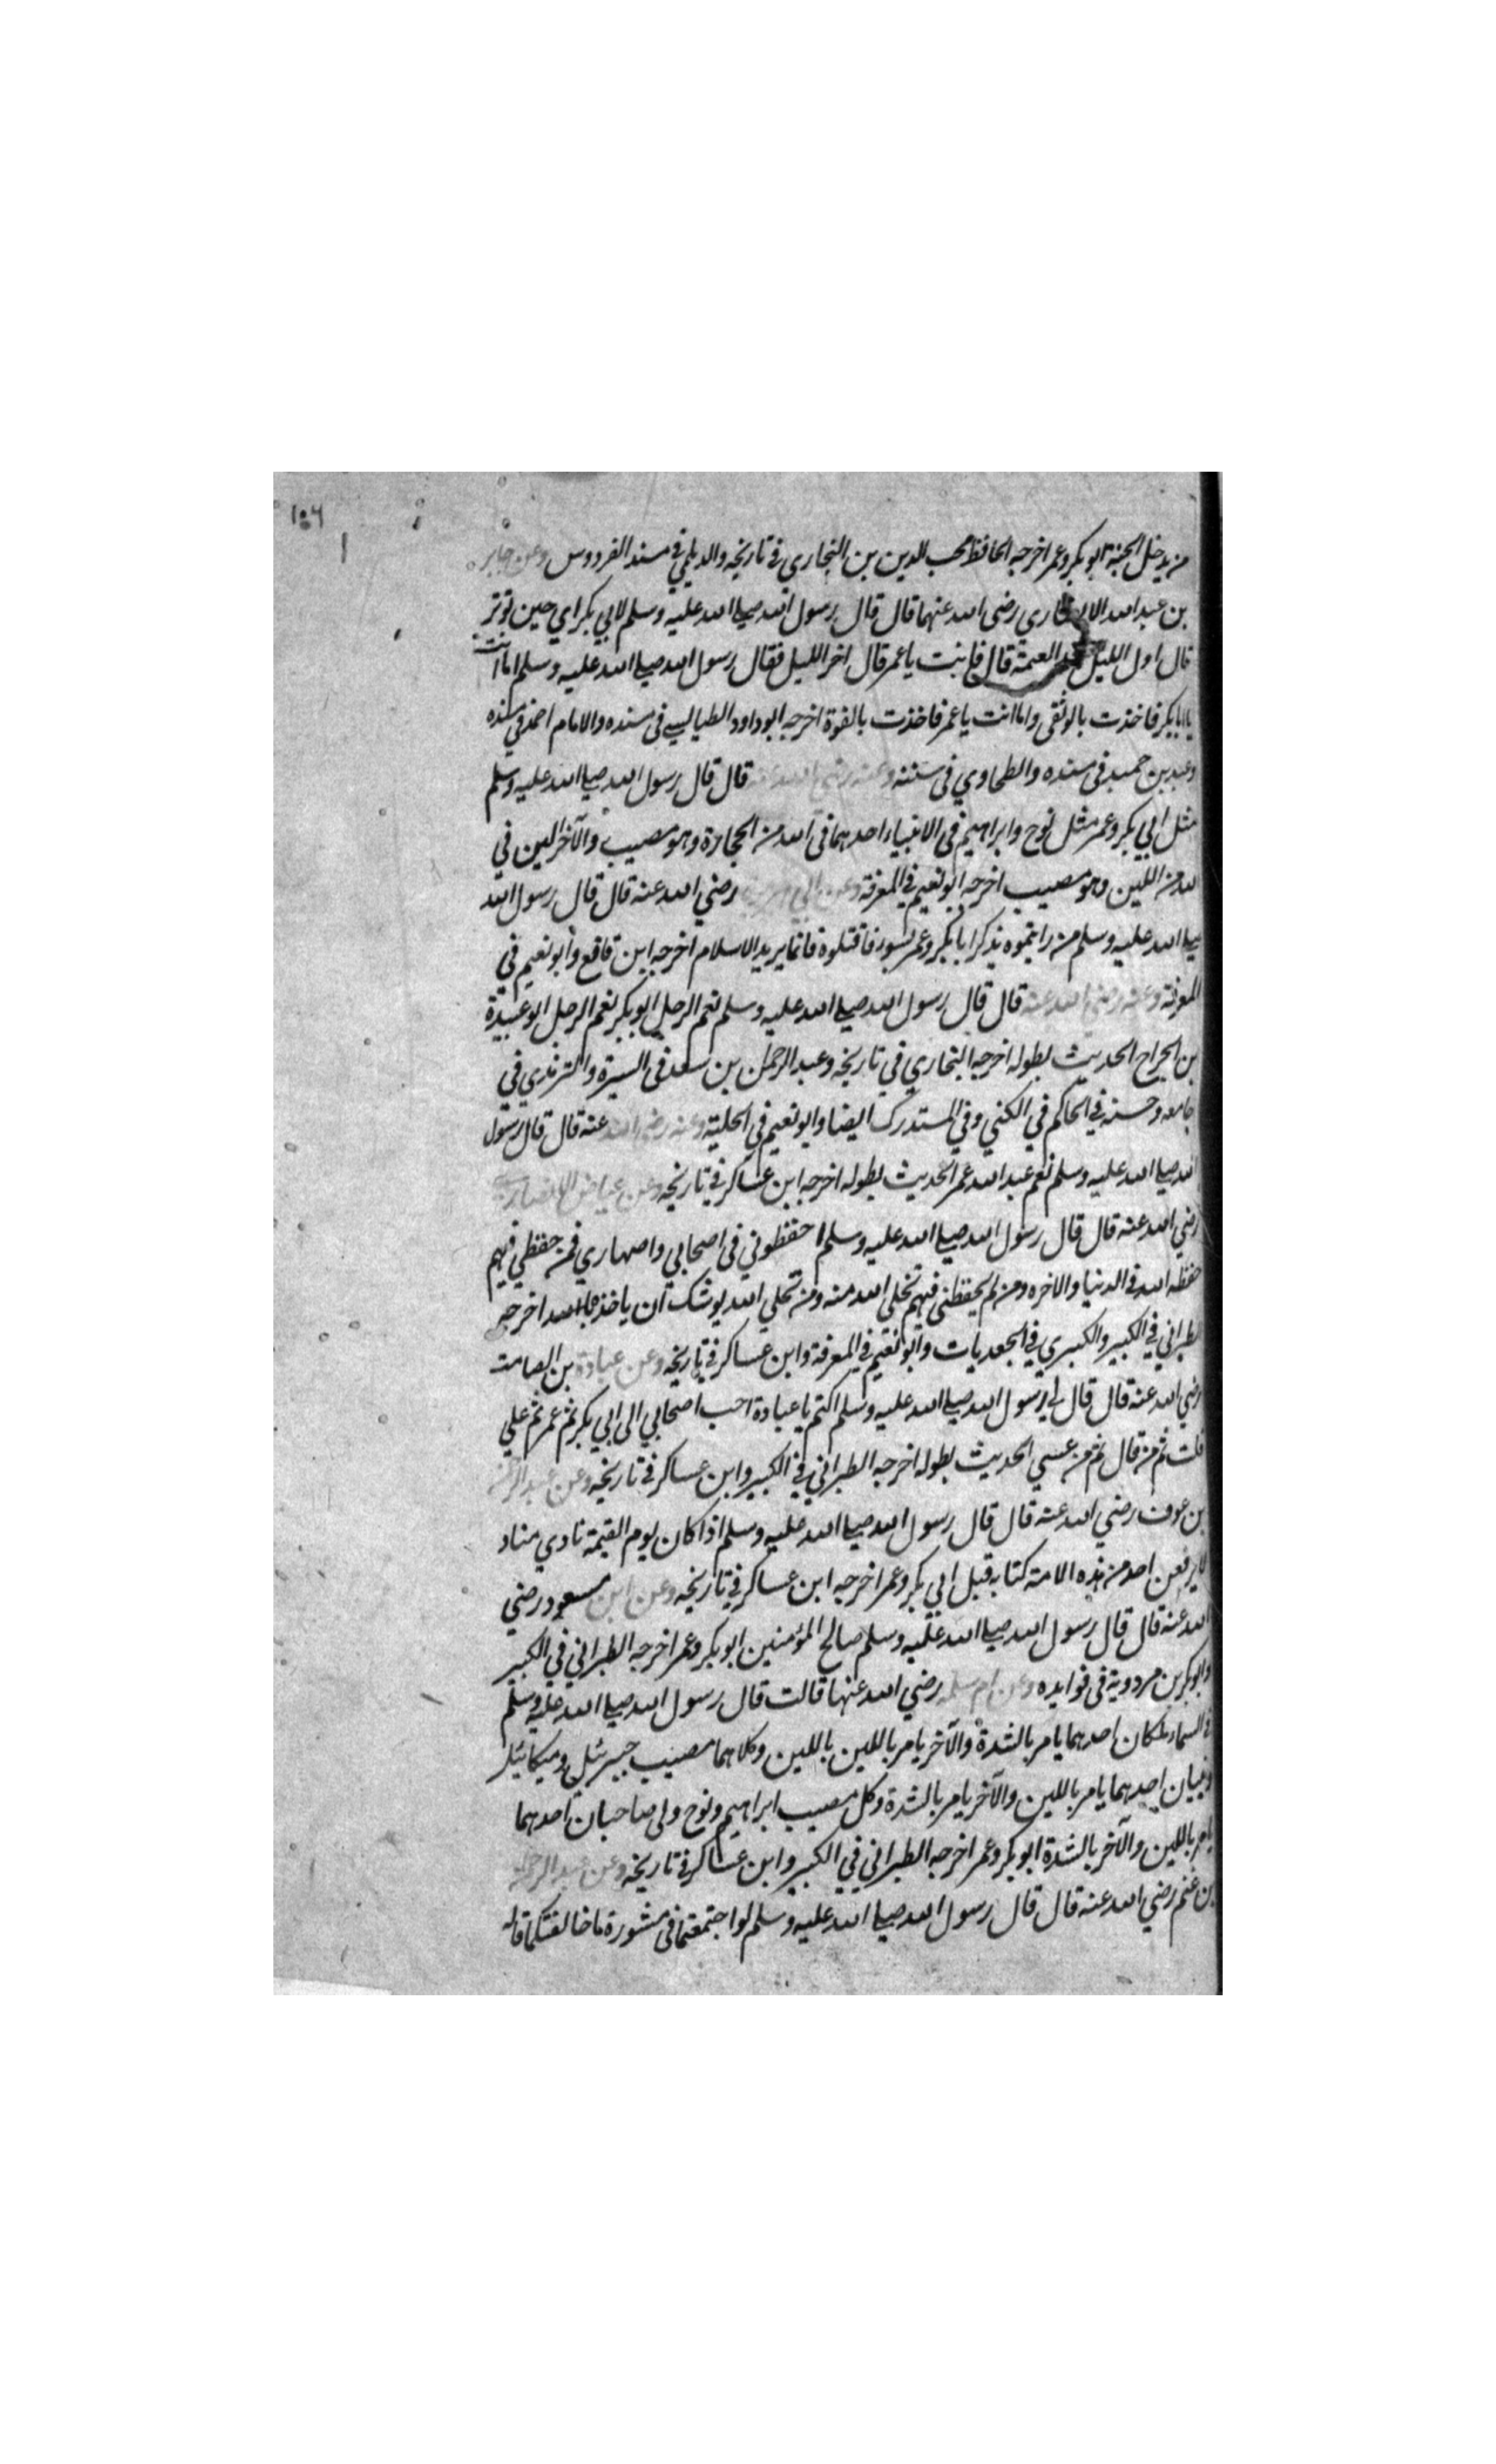 ١٥٦
من يدخل الجنة ابو بكر وعمر اخرجه الحافظ محب الدين بن النجاري في تاريخه والديلمي في مسند الفردوس وعن جابر
بن عبد الله الانصاري رضي الله عنهما قال قال رسول الله صلى الله عليه وسلم لابي بكر اي حين توتر
قال اول الليل بعد العتمة قال فانت يا عمر قال اخر الليل فقال رسول الله صلى الله عليه وسلم اما انت
يا ابا بكر فاخذت بالوثقى واما انت يا عمر فاخذت بالقوة اخرجه ابو داود الطيالسي في مسنده والامام احمد في مسنده
وعبد بن حميد في مسنده والطحاوي في سننه وعنه رضي الله عنه قال قال رسول الله صلى الله عليه وسلم
مثل ابي بكر وعمر مثل نوح وابراهيم في الانبياء احدهما في الله من الحجارة وهو مصيب والآخر الين في
الله من اللين وهو مصيب اخرجه ابو نعيم في المعرفة وعن ابي رضي الله عنه قال قال رسول الله
صلى الله عليه وسلم من رايتموه يذكر ابا بكر وعمر بسوء فاقتلوه فانما يريد الاسلام اخرجه ابن قانع وابو نعيم في
المعرفة وعنه رضي الله عنه قال قال رسول الله صلى الله عليه وسلم نعم الرجل ابو بكر نعم الرجل ابو عبيدة
بن الجراح الحديث بطوله اخرجه البخاري في تاريخه وعبد الرحمن بن سعد في السيرة والترمذي في
جامعه وحسنه في الحاكم في الكنى وفي المستدرك ايضا وابو نعيم في الحلية وعنه رضي الله عنه قال قال رسول
الله صلى الله عليه وسلم نعم عبد الله عمر الحديث بطوله اخرجه ابن عساكر في تاريخه وعن عياض الانصاري
رضي الله عنه قال قال رسول الله صلى الله عليه وسلم احفظوني في اصحابي واصهاري فمن حفظني فيهم
حفظه الله في الدنيا والاخره ومن لم يحفظني فيهم تخلى الله منه ومن تخلى الله يوشك ان ياخذه الله اخرجه
الطبراني في الكبير والكبيري في الجعديات وابو نعيم في المعرفة وابن عساكر في تاريخه وعن عبادة بن الصامت
رضي الله عنه قال قال لي رسول الله صلى الله عليه وسلم اكتم يا عبادة احب اصحابي الى ابي بكر ثم عمر ثم علي
قلت ثم من قال ثم من عسى الحديث بطوله اخرجه الطبراني في الكبير وابن عساكر في تاريخه وعن عبد الرحمن
بن عوف رضي الله عنه قال قال رسول الله صلى الله عليه وسلم اذا كان يوم القيمة نادي مناد
لا يرفعن احد من هذه الامة كتابه قبل ابي بكر وعمر اخرجه ابن عساكر في تاريخه وعن ابن مسعود رضي
الله عنه قال قال رسول الله صلى الله عليه وسلم صالح المؤمنين ابو بكر وعمر اخرجه الطبراني في الكبير
وابو بكر بن مردويه في فوايده وعن ام سلمة رضي الله عنها قالت قال رسول الله صلى الله عليه وسلم
في السماء ملكان احدهما يامر بالشدة والآخر يامر باللين باللين وكلاهما مصيب جبرئيل وميكائيل
ونبيان احدهما يامر باللين والآخر يامر بالشدة وكل مصيب ابراهيم ونوح ولي صاحبان احدهما
يامر باللين والآخر بالشدة ابو بكر وعمر اخرجه الطبراني في الكبير وابن عساكر في تاريخه وعن عبد الرحمن
بن غنم رضي الله عنه قال قال رسول الله صلى الله عليه وسلم لو اجتمعتما في مشورة ما خالفتكما قاله